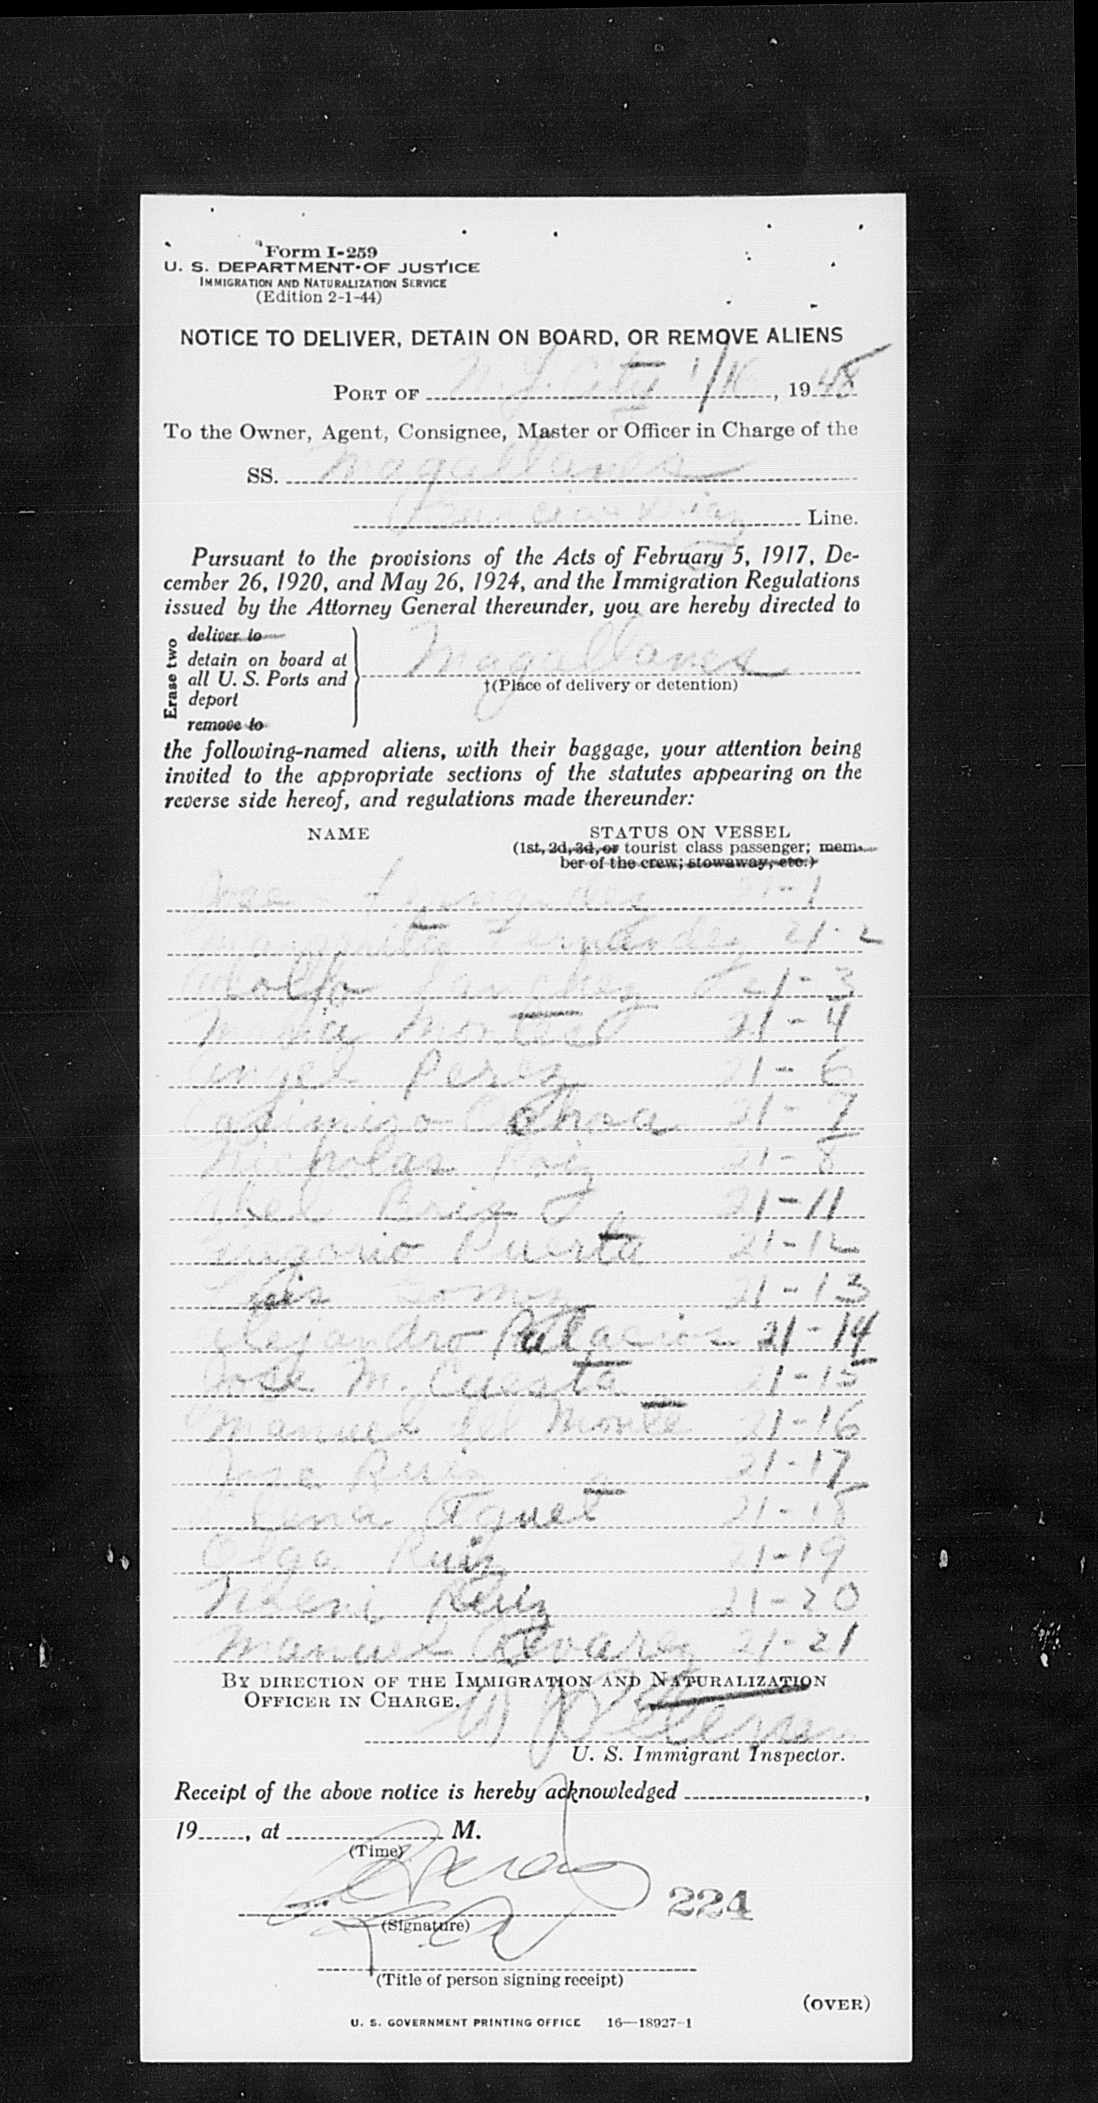 Form I-259
U. S. DEPARTMENT OF JUSTICE
IMMIGRATION AND NATURALIZATION SERVICE
(Edition 2-1-44)
NOTICE TO DELIVER, DETAIN ON BOARD, OR REMOVE ALIENS
PORT OF N.Y. City 1/16, 1948
To the Owner, Agent, Consignee, Master or Officer in Charge of the
SS. Magallanes
Garcia & Diaz Line.
Pursuant to the provisions of the Acts of February 5, 1917, De-
cember 26, 1920, and May 26, 1924, and the Immigration Regulations
issued by the Attorney General thereunder, you are hereby directed to
Erase two
deliver to
detain on board at
all U. S. Ports and
deport
remove to
Magallanes
†(Place of delivery or detention)
the following-named aliens, with their baggage, your attention being
invited to the appropriate sections of the statutes appearing on the
reverse side hereof, and regulations made thereunder:
NAME STATUS ON VESSEL
(1st, 2d, 3d, or tourist class passenger; mem-
ber of the crew; stowaway, etc.)
Jose 21-1
Margarita Fernandez 21-2
Adolfo Sanchez 21-3
Maria Montes 21-4
Angel Perez 21-6
Casimiro Ochoa 21-7
Nicholas Roiz 21-8
Abel Briz 21-11
Puerta 21-12
Luis Gomez 21-13
Alejandro Palacios 21-14
Jose M. Cuesta 21-15
Manuel del Monte 21-16
Jose Ruiz 21-17
Elena 21-18
Olga Ruiz 21-19
Ruiz 21-20
Manuel Alvarez 21-21
BY DIRECTION OF THE IMMIGRATION AND NATURALIZATION
OFFICER IN CHARGE.
U. S. Immigrant Inspector.
Receipt of the above notice is hereby acknowledged ,
19 , at M.
(Time)
224
(Signature)
(Title of person signing receipt)
(OVER)
U. S. GOVERNMENT PRINTING OFFICE 16—18927-1